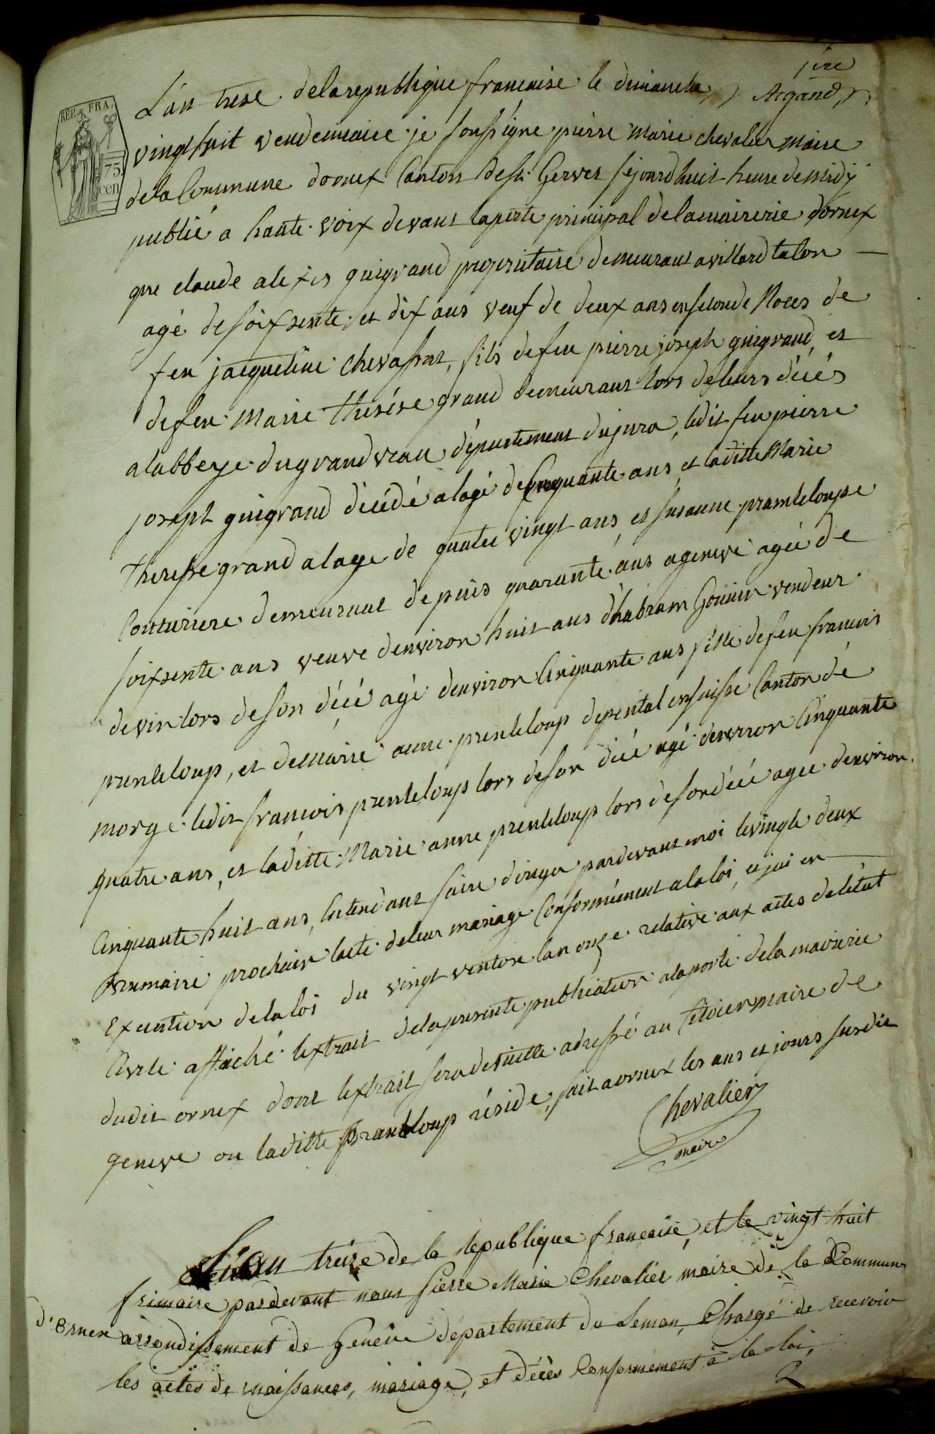 1ere
Argand
REP. FRA.
75
cen
L'an treze de la republique francaise le dimanche
vingt huit vendemiaire je soussigne pierre marie chevalier maire
de la Commune dornex Canton de St. Gervex sejourdhuit heure de midÿ
publié a haute voix devant la porte principal de la mairerie dornex
que claude alexis guigrand proprietaire demeurant a villard talon
agé de soixsente et dix ans veuf de deux ans en seconde Noces de
feu jacqueline chevassat, fils de feu pierre joseph guigrand, et
de feu Marie Therése grand demeurant lors de leurs décés
a labbeye du grandveau département du jura, ledit feu pierre
joseph guigrand décédé a lage de Cinquante ans et laditte Marie
Therese grand a lage de quatre vingt ans et susanne pranteloupe
Couturiere demeurant depuis quarante ans a geneve agée de
soixsente ans veuve denviron huit ans dhabram Gonnin vendeur
de vin lors de son décé agé denviron Cinquante ans fille de feu francois
prenteloup, et de Marie anne prenteloup de en suisse Canton dé
morge ledit francois prenteloup lors de son décé agé denviron Cinquante
quatre ans, et laditte Marie anne prenteloup lors de son décé agee denviron
Cinquante huit ans, entendant faire diriger pardevant moi le vingte deux
Brumaire prochain lacte de leur mariage Conformément a la loi, ce jai en
Execution de la loi du vingt ventose lan onze relative aux actes de létat
Civile affiché lextrait de la presente publication a la porte de la mairerie
dudit ornex dont lextrait sera de suitte adressé au Citoien maire de
geneve ou laditte Pranteloup réside, fait a ornex les ans et jours susdit
Chevalier
maire
L'an treize de la république francaise, et le vingt huit
frimaire pardevant nous Pierre Marie Chevalier maire de la Commune
d'Ornex arrondissement de Genève département du Leman, Chargé de recevoir
les actes de naissances, mariage, et décès Conformément à la loi,